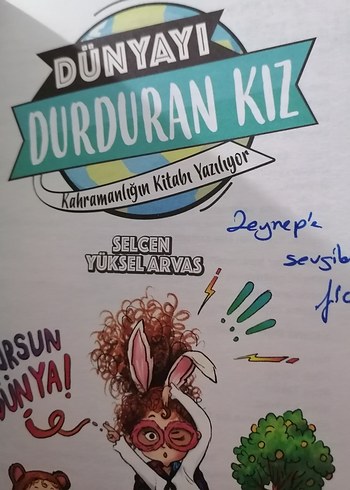 DÜNYAYI
DURDURAN KIZ
Kahramanlığın Kitabı Yazılıyor
SELCEN
YÜKSEL ARVAS
Zeynep'e